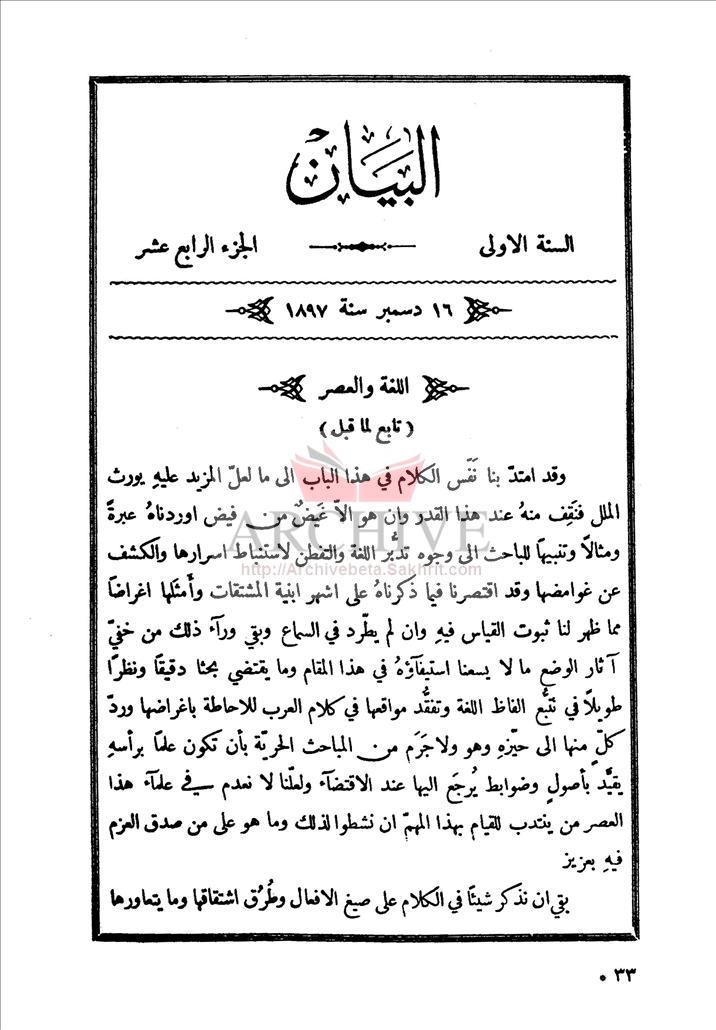 البيان
السنة الاولى الجزء الرابع عشر
١٦ دسمبر سنة ١٨٩٧
اللغة والعصر
( تابع لما قبل )
وقد امتدّ بنا نَفَس الكلام في هذا الباب الى ما لعلّ المزيد عليهِ يورث
الملل فنَقِف منهُ عند هذا القدر وان هو الاّ غَيضٌ من فيض اوردناهُ عبرةً
ARCHIVE
ومثالاً وتنبيهًا للباحث الى وجوه تدبُّر اللغة والتفطن لاستنباط اسرارها والكشف
http://Archivebeta.Sakhrit.com
عن غوامضها وقد اقتصرنا فيما ذكرناهُ على اشهر ابنية المشتقات وأَمثَلها اغراضًا
مما ظهر لنا ثبوت القياس فيهِ وان لم يطّرد في السماع وبقي ورآء ذلك من خفيّ
آثار الوضع ما لا يسعنا استيفآؤهُ في هذا المقام وما يقتضي بحثا دقيقًا ونظرًا
طويلاً في تتبُّع الفاظ اللغة وتفقُّد مواقعها في كلام العرب للاحاطة باغراضها وردّ
كلٍّ منها الى حيّزهِ وهو ولا جَرَم من المباحث الحريّة بأن تكون علمًا برأسهِ
يقيَّد بأصولٍ وضوابط يُرجَع اليها عند الاقتضآء ولعلّنا لا نعدم في علمآء هذا
العصر من ينتدب للقيام بهذا المهمّ ان نشطوا لذلك وما هو على من صدق العزم
فيهِ بعزيز
بقي ان نذكر شيئًا في الكلام على صيغ الافعال وطُرُق اشتقاقها وما يتعاورها
٣٣ •